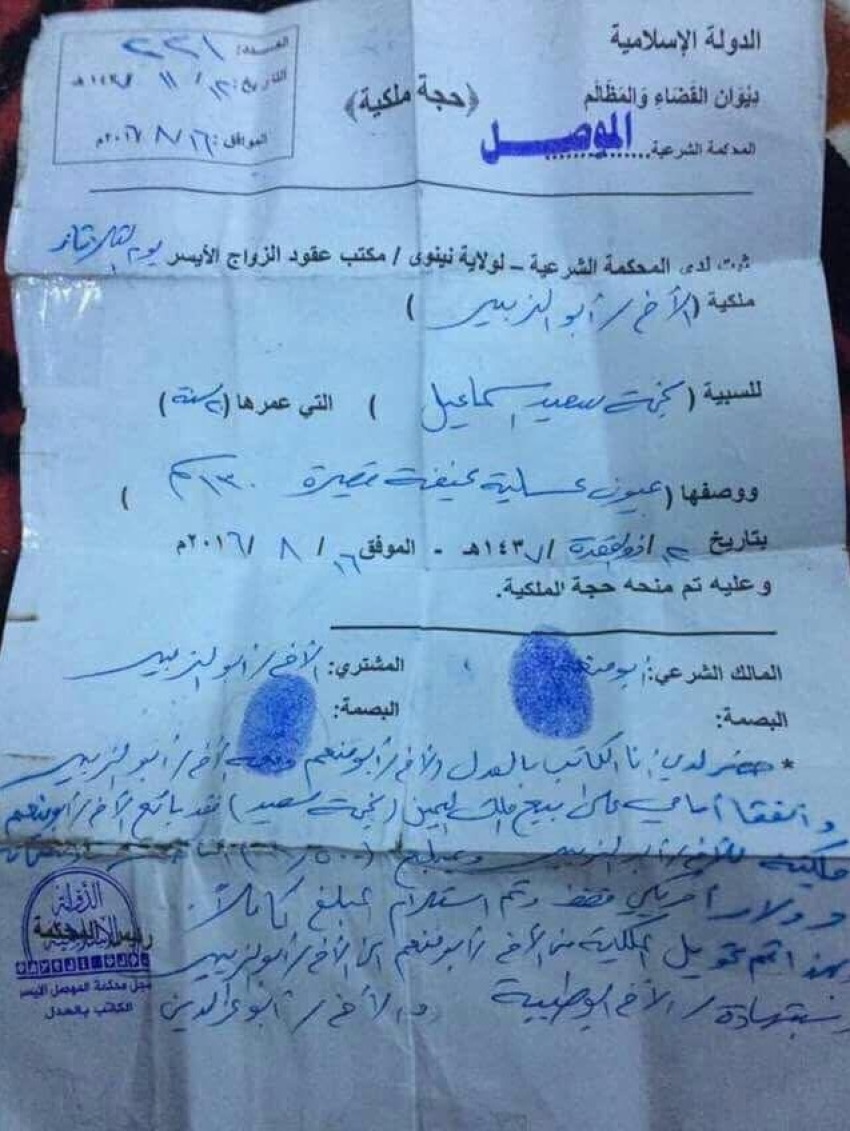 الدولة الإسلامية
ديوان القضاء والمظالم
المحكمة الشرعية......... الموصل
﴿حجة ملكية﴾
العدد: ٢٣١
التاريخ: ١٣ / ١١ / ١٤٣٧ هـ
الموافق: ١٦ / ٨ / ٢٠١٦م
ثبت لدى المحكمة الشرعية – لولاية نينوى / مكتب عقود الزواج الأيسر يوم الثلاثاء
ملكية (الأخ / أبو الزبير)
للسبية (نجمت سعيد إسماعيل) التي عمرها (٢٠ سنة)
ووصفها (عيون عسلية نحيفة قصيرة ١٣٠ سم)
بتاريخ ١٣ / ذو القعدة / ١٤٣٧هـ - الموفق ١٦ / ٨ / ٢٠١٦م
وعليه تم منحه حجة الملكية.
المالك الشرعي: أبو منعم
المشتري: الأخ / أبو الزبير
البصمة:
البصمة:
* حضر لدي أنا الكاتب بالعدل الأخ / أبو منعم ومعه أخ / أبو الزبير
واتفقا أمامي على بيع ملك اليمين (نجمت سعيد) فقد بائع الأخ / أبو منعم
ملكيته للأخ / أبو الزبير وبمبلغ
دولار أمريكي فقط وتم استلام المبلغ كاملاً.
وبهذا تم تحويل الملكية من الأخ / أبو منعم إلى الأخ / أبو الزبير
وبشهادة / الأخ والأخ / أبو عز الدين
الدولة الإسلامية
رئيس المحكمة
محكمة الموصل الأيسر
الكاتب بالعدل